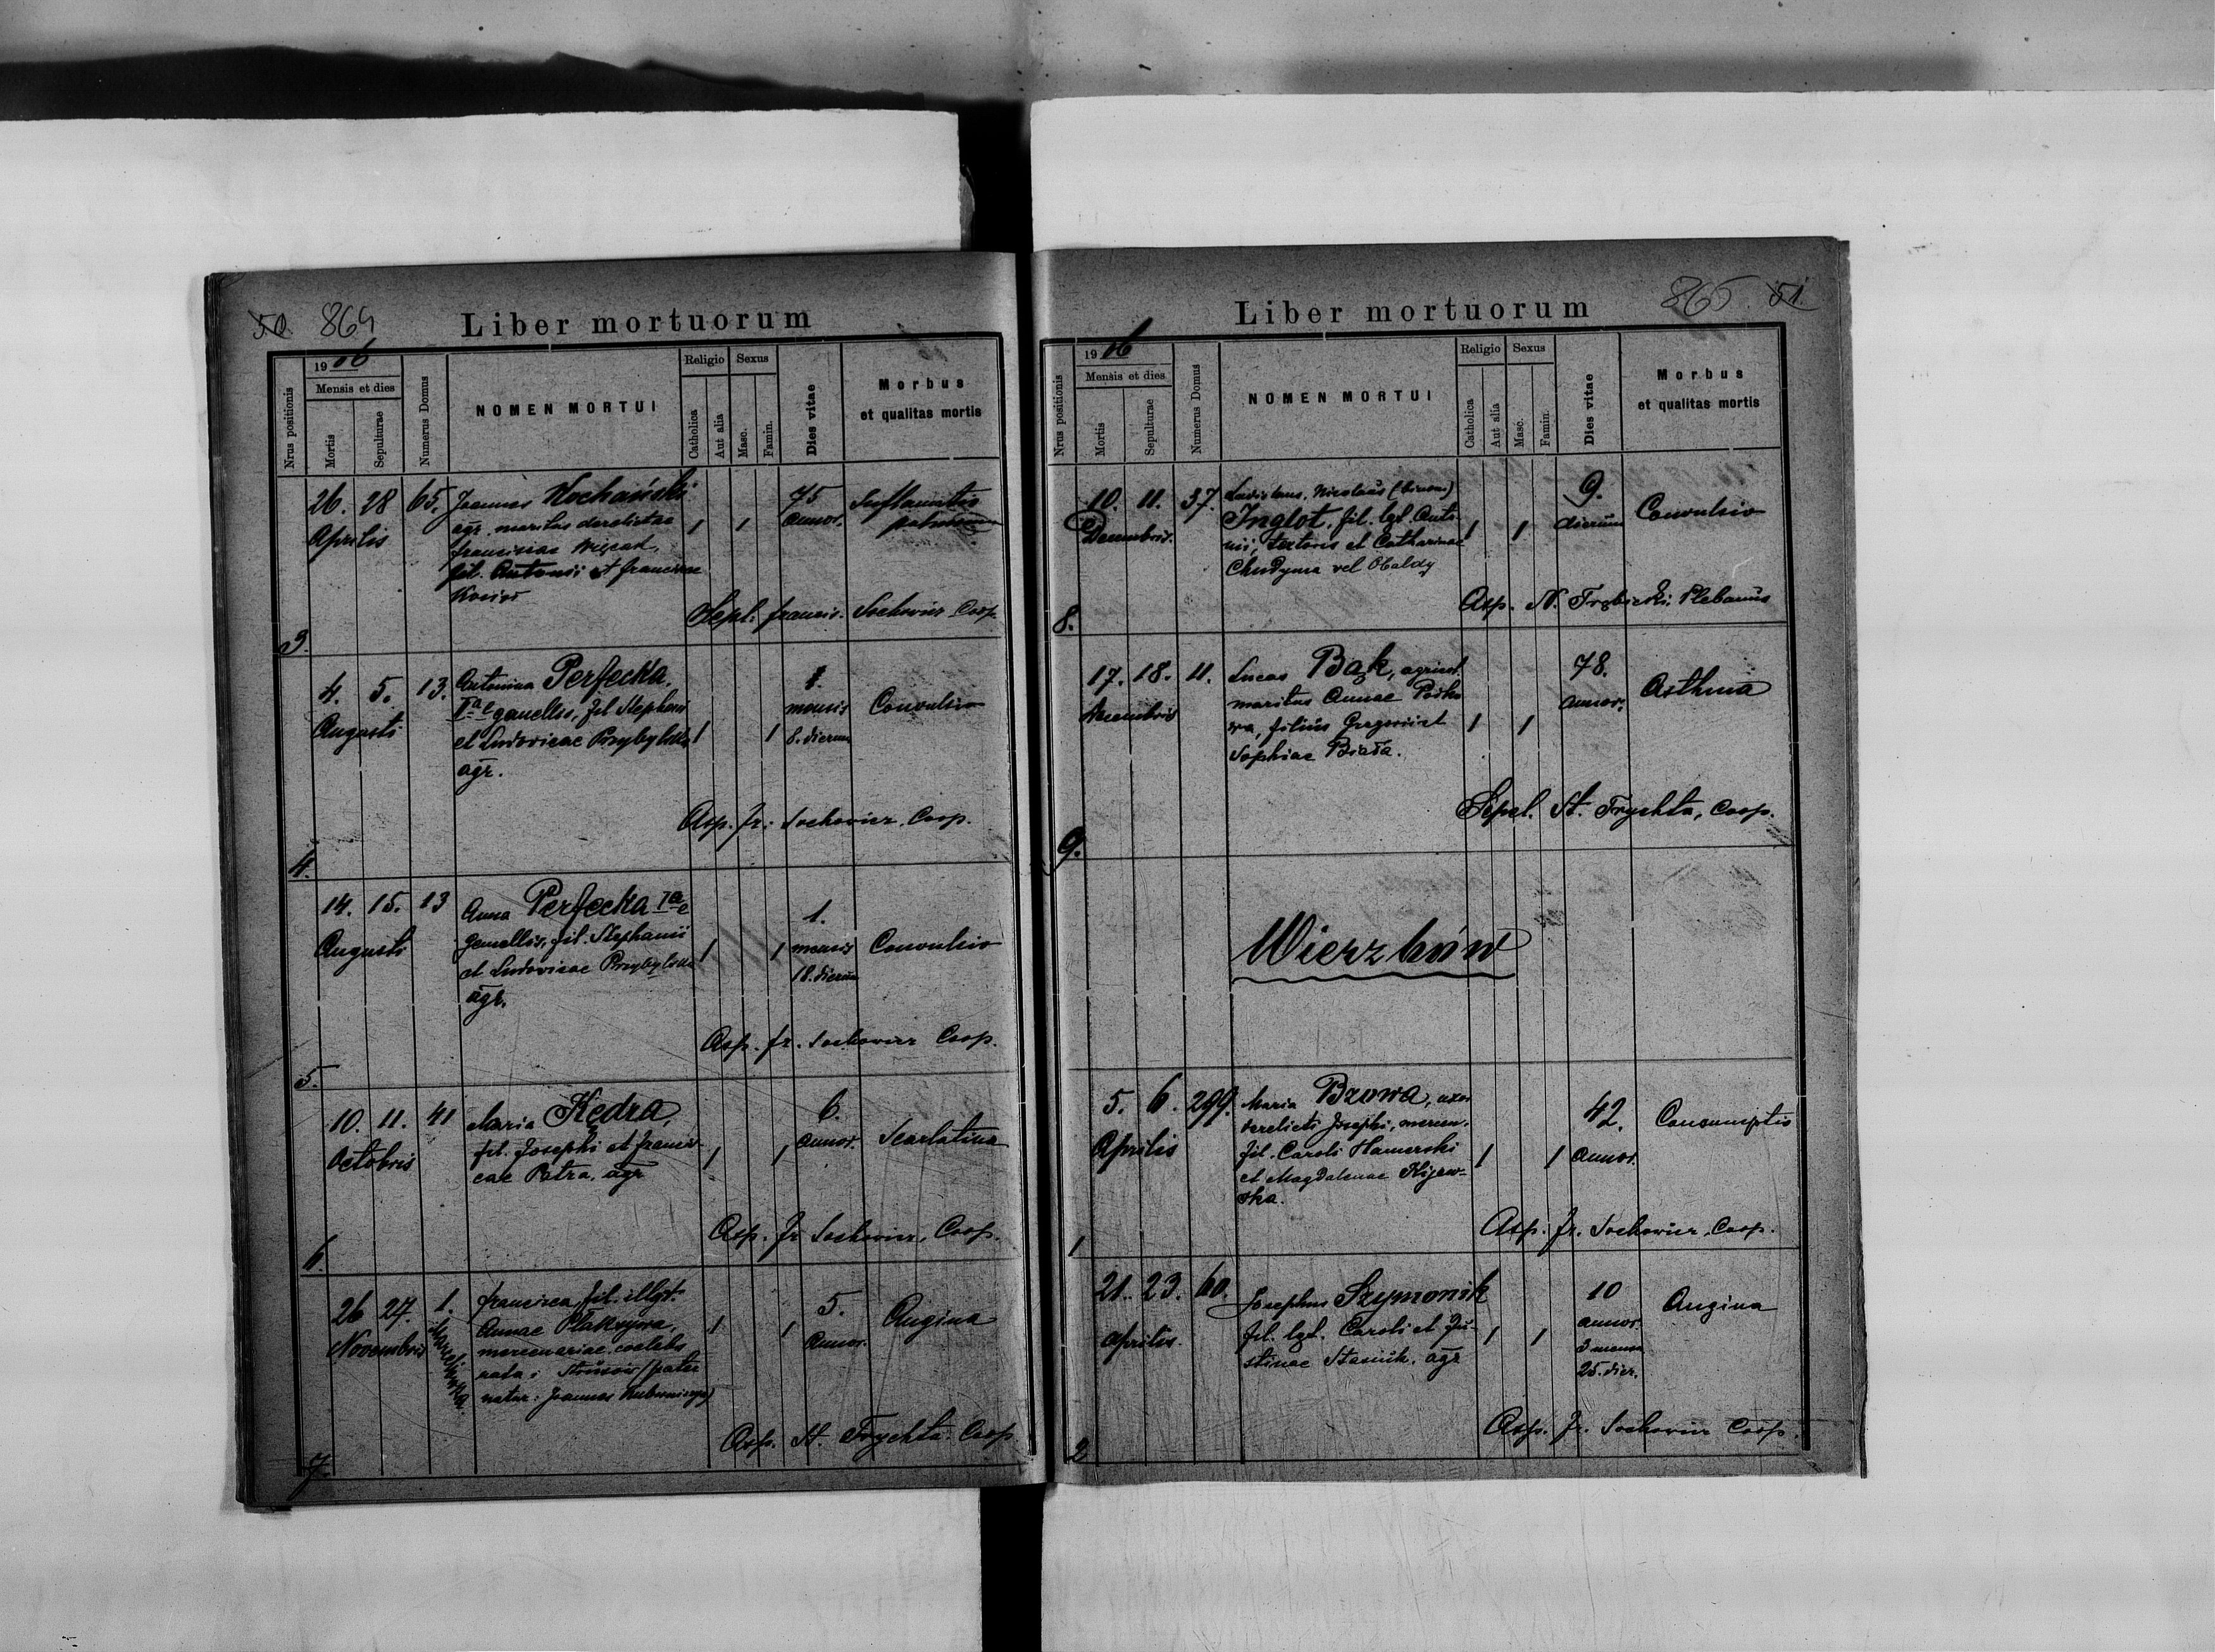 50. 864
Liber mortuorum
Nrus positionis
1906
Mensis et dies
Mortis
Sepulturae
Numerus Domus
NOMEN MORTUI
Religio
Catholica
Aut alia
Sexus
Masc.
Famin.
Dies vitae
Morbus
et qualitas mortis
3.
26. 28 65.
Aprilis
Joannes Kochański
agr. maritus derelictae
Franciscae
fil. Antonii et Franciscae
1 1
75
annor.
Sepel: Francis. Sochowicz Coop.
4.
4. 5. 13.
Augusti
Antonina Perfecka,
IIa e gemellis, fil Stephani
et Ludovicae Przybylska
agr.
1 1
1.
mensis
8. dierum
Convulsio
Asp. Fr: Sochowicz. Coop.
5.
14. 15. 13
Augusti
Anna Perfecka Ia e
gemellis, fil. Stephanii
et Ludovicae Przybylska
agr.
1 1
1.
mensis
18. dierum
Convulsio
Asp. Fr. Sochowicz Coop.
6.
10. 11. 41
Octobris
Maria Kędra,
fil. Josephi et Francis-
cae Patra, agr
1 1
6.
annor.
Scarlatina
Asp. Fr Sochowicz, Coop.
7.
26 27. 1.
Novembris
Francisca, fil. illgt.
Annae
mercenariae, coelebs
nata i (pater
natur: Joannes
1 1
5.
annor.
Angina
Asp. St. Trychta. Coop
865. 51.
Liber mortuorum
Nrus positionis
1906
Mensis et dies
Mortis
Sepulturae
Numerus Domus
NOMEN MORTUI
Religio
Catholica
Aut alia
Sexus
Masc.
Famin.
Dies vitae
Morbus
et qualitas mortis
8.
10. 11. 37.
Decembris.
Ladislaus, Nicolaus (binom)
Inglot, fil. lgt. Anto-
nii, textoris et Catharinae
Chudyma vel
1 1
9.
dierum
Convulsio
Asp. N. Plebanus
9.
17. 18. 11.
Decembris
Lucas Bąk, agricol.
maritus Annae
filius Gregorii et
Sophiae
1 1
78.
annor.
Asthma
Sepel. St. Trychta, Coop.
Wierzbów
1
5. 6. 299.
Aprilis
Maria Bzowa, uxor
derelicti Josephi, mercen.
fil. Caroli Hamerski
et Magdalenae Kijow-
ska.
1 1
42.
annor.
Consumptio
Asp. Fr. Sochowicz, Coop.
2
21. 23. 60.
Aprilis.
Josephus Szymonik
fil. lgt. Caroli et Ju-
stinae Stasiuk. agr
1 1
10
annor.
3 mens.
25. dier.
Angina
Asp. Fr. Sochowicz Coop.